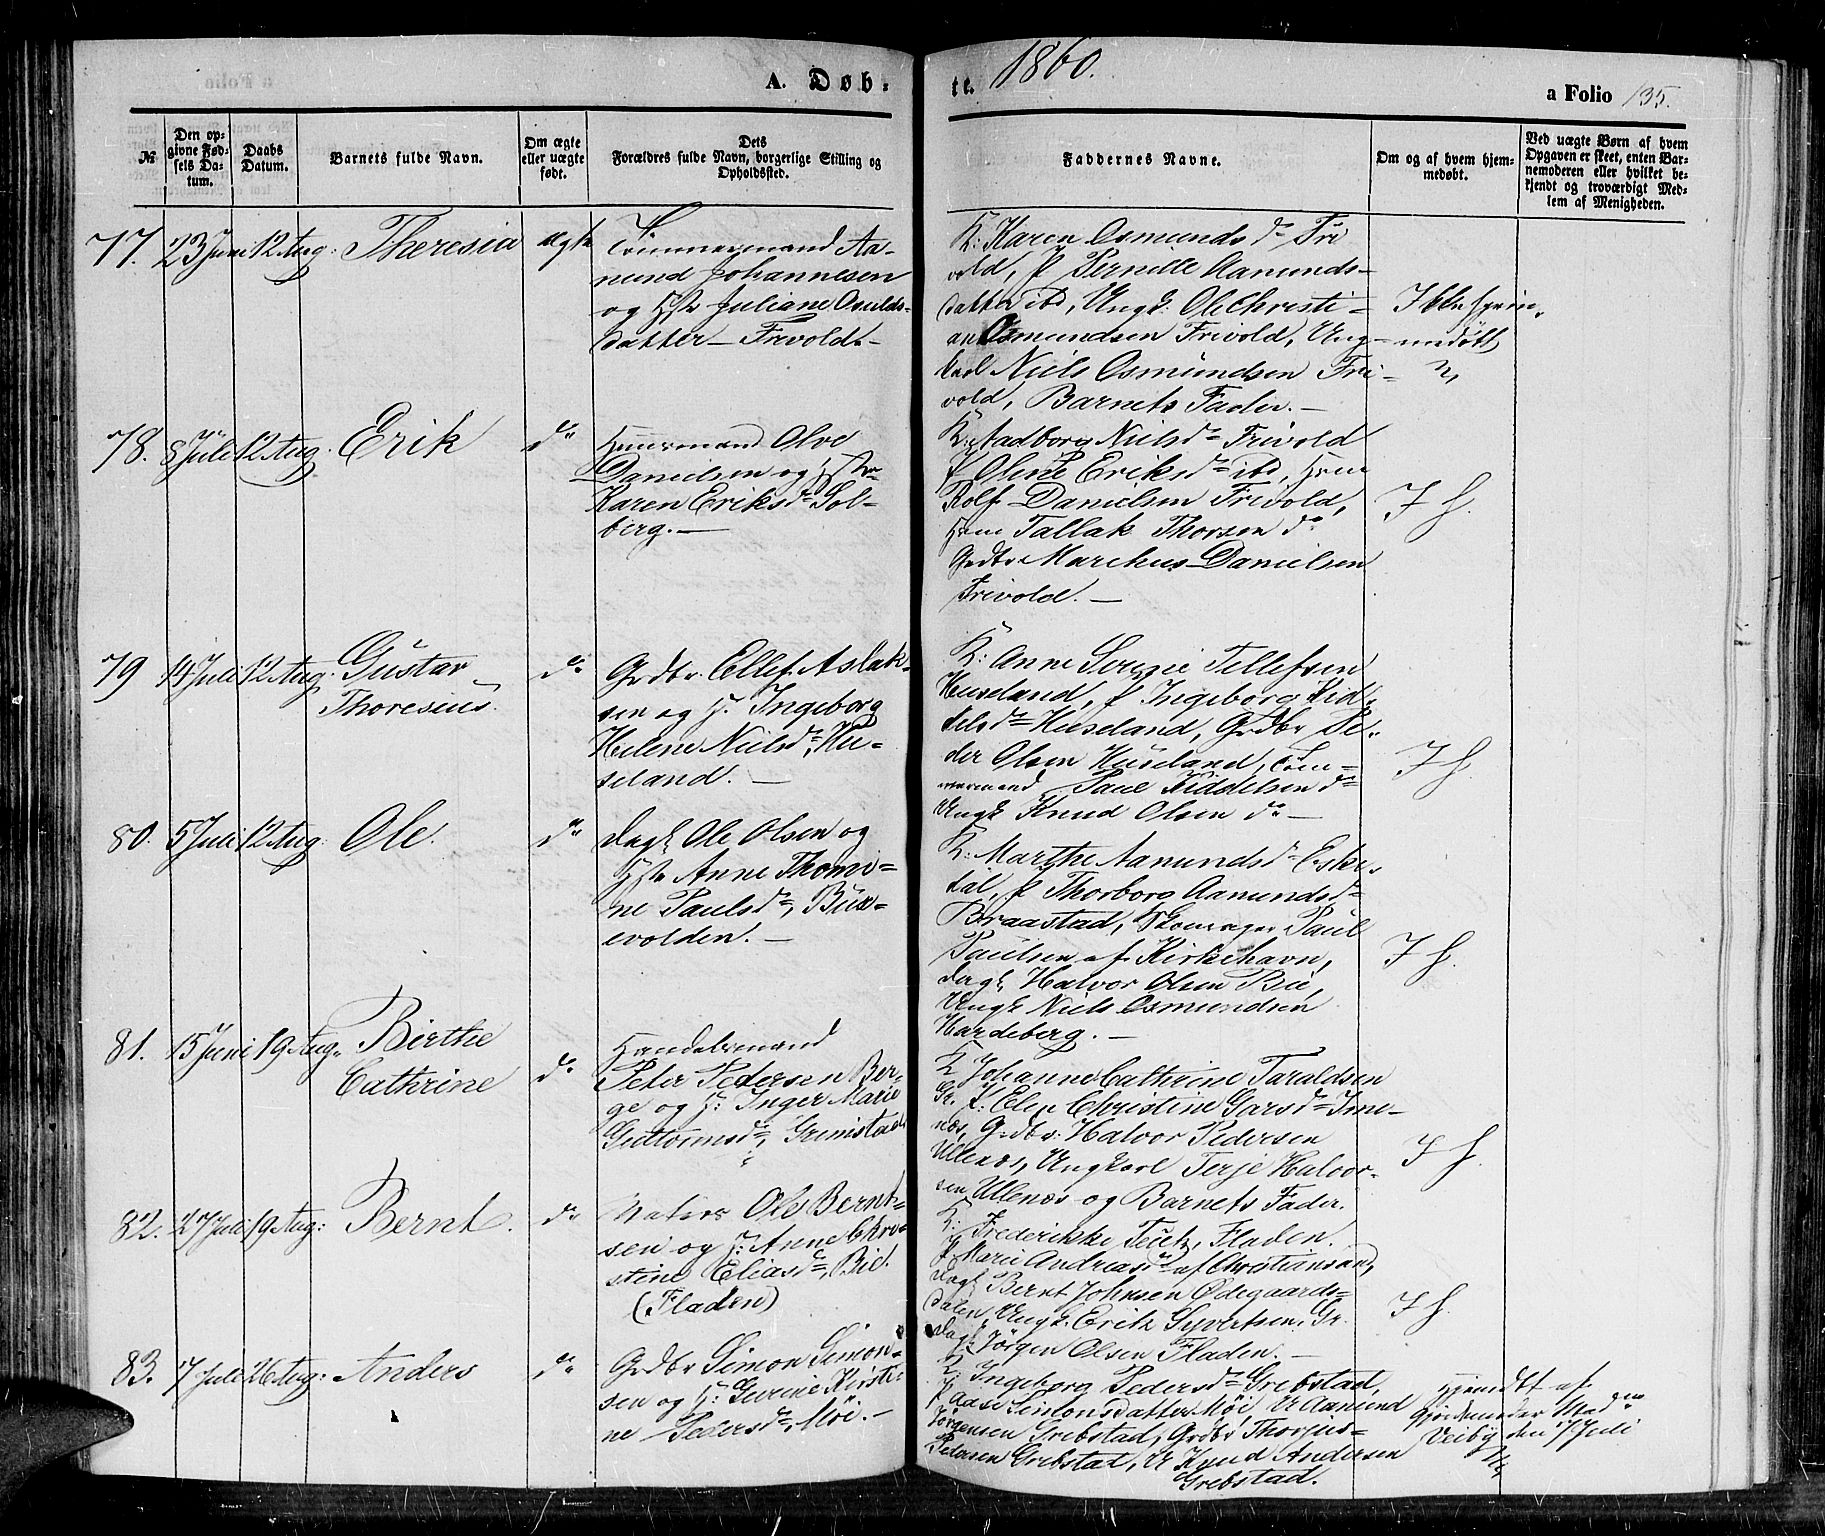 1860.
A. Døb-
te.
a Folio 135.
№
Den op-
givne Fød-
sels Da-
tum.
Daabs
Datum.
Barnets fulde Navn.
Om ægte
eller uægte
født.
Dets
Forældres fulde Navn, borgerlige Stilling og
Opholdssted.
Faddernes Navne.
Om og af hvem hjem-
medøbt.
Ved uægte Børn af hvem
Opgaven er skeet, enten Bar-
nemoderen eller hvilket be-
kjendt og troværdigt Med-
lem af Menigheden.
77. 23 Juni 12 Aug: Theresia ægte
Tømmermand Aa-
nund Johannesen
og Hst Juliane Osulds-
datter - Frivold. -
K: Karen Osmunds dr Fri
vold, P Pernille Aanunds-
datter ibd, Ungk: Ole Christi-
an Osmundsen Frivold, Ung-
karl Niels Osmundsen Fri-
vold, Barnets Fader. -
Ikke hjem-
medøbt
78. 8 Juli 12 Aug. Erik do
Huusmand Olve
Danielsen og Hstr
Karen Eriksdr Sol-
berg. -
K: Aadborg Nielsdr Frivold
P Oline Eriksdr ibd, Hm
Rolf Danielsen Frivold,
Hm Tallak Thorsen do
Grdbr Marchus Danielsen
Frivold. -
I H.
79 14 Juli 12 Aug. Gustav
Thoresius. do
Grdbr. Ellef Aslak-
sen og H. Ingeborg
Helene Nielsdr, Hu-
seland. -
K: Anne Serine Tellefsen
Huseland, P Ingeborg Kid-
delsdr Huseland, Grdbr Pe-
der Olsen Huseland, Tøm-
mermand Paul Kiddelsen do
Ungk Knud Olsen do -
I H.
80. 5 Juli 12 Aug. Ole. do
Dagl Ole Olsen og
Hstr Anne Thomi-
ne Paulsdr, Bux-
evolden. -
K: Marthe Aanundsdr Eske-
dal, P Thorborg Aanundsdr
Braastad, Skomager Paul
Paulsen af Kirkehavn,
Dagl Halvor Olsen Bie,
Ungk Niels Osmundsen
Hardeberg. -
I H.
81. 15 Juni 19 Aug. Birthe
Cathrine do
Handelsmand
Peter Pedersen Ber-
ge og H: Inger Marie
Guttormsdr, Grimstad
K Johanne Cathrine Taraldsen
Gr. P: Elen Christine Garsdr Ime-
næs, Grdbr. Halvor Pedersen
Ullenæs, Ungkarl Terje Halvor-
sen Ullenæs og Barnets Fader.
I H.
82. 27 Juli 19 Aug: Bernt. do
Matros Ole Bernt-
sen og H: Anne Chri-
stine Eliasdr, Bie.
(Fladen)
K: Frederikke Teutz, Fladen.
P Marie Andreasdr af Christiansand,
Dagl Bernt Johnsen Ødegaards-
dalen, Ungk. Erik Syvertsen, Gr.
Dagl Jørgen Olsen Fladen. -
I H.
83. 7 Juli 26 Aug: Anders do
Grdbr Simon Simon-
sen og H: Gurine Kirsti-
ne Pedersdr, Møi. -
K. Ingeborg Pedersdr Grebstad,
P Aase Simonsdatter Møi U Aanund
Jørgensen Grebstad, Grdbr. Thorjus
Pedersen Grebstad, U Knud Andersen
Grebstad.
Hjemdt af
Gjordemoder Mad
Veiby den 7 Juli